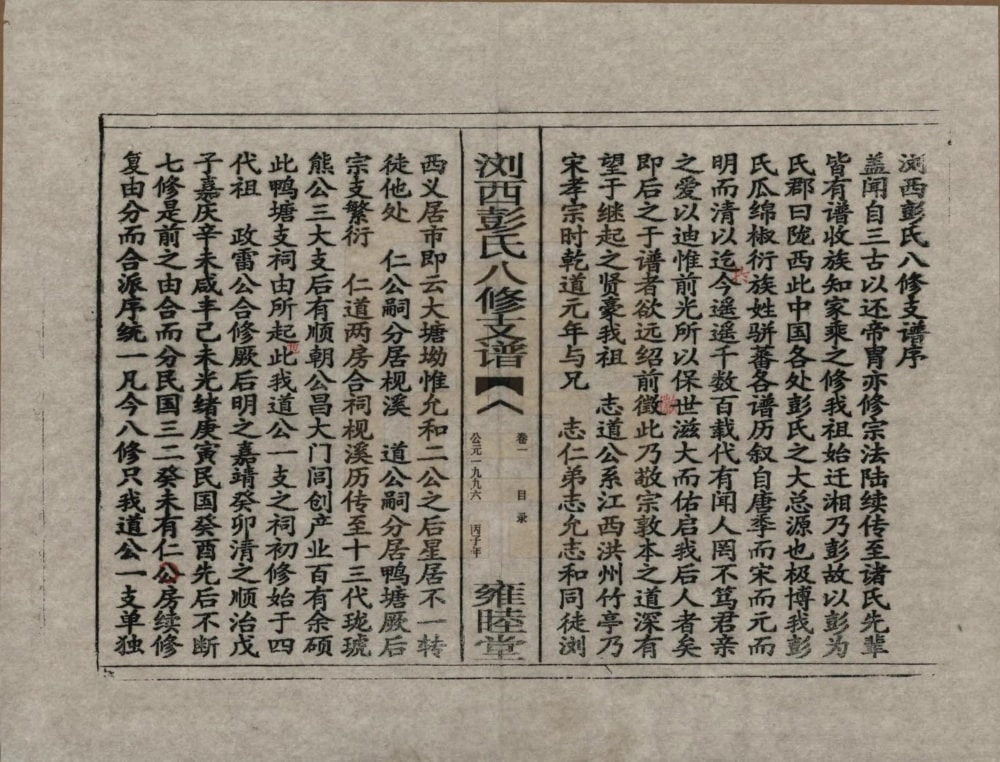 浏西彭氏八修支谱序
盖闻自三古以还帝胄亦修宗法陆续传至诸氏先辈
皆有谱收族知家乘之修我祖始迁湘乃彭故以彭为
氏郡曰陇西此中国各处彭氏之大总源也极博我彭
氏瓜绵椒衍族姓骈蕃各谱历叙自唐季而宋而元而
明而清以迄今遥遥千数百载代有闻人罔不笃君亲
之爱以迪惟前光所以保世滋大而佑启我后人者矣
即后之于谱者欲远绍前徵此乃敬宗敦本之道深有
望于继起之贤豪我祖 志道公系江西洪州竹亭乃
宋孝宗时乾道元年与兄 志仁弟志允志和同徒浏
浏西彭氏八修支谱
卷一 目录
公元一九九六 丙子年
雍睦堂
西义居市即云大塘坳惟允和二公之后星居不一转
徒他处 仁公嗣分居枧溪 道公嗣分居鸭塘厥后
宗支繁衍 仁道两房合祠枧溪历传至十三代珑琥
熊公三大支后有顺朝公昌大门闾创产业百有余硕
此鸭塘支祠由所起此我道公一支之祠初修始于四
代祖 政雷公合修厥后明之嘉靖癸卯清之顺治戊
子嘉庆辛未咸丰己未光绪庚寅民国癸酉先后不断
七修是前之由合而分民国三二癸未有仁公房续修
复由分而合派序统一凡今八修只我道公一支单独